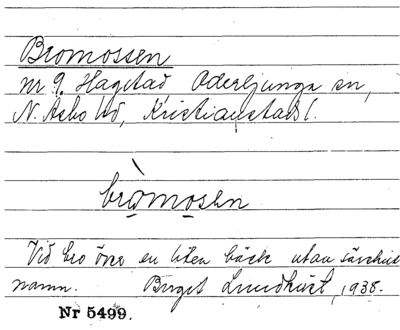 Bromossen
nr 9. Hagstad, Oderljunga sn,
N. Åsbo hd, Kristianstads l.
bròmosen
Vid bro över en liten bäck utan särskilt
namn. Birget Lundkvist, 1938.
Nr 5499.